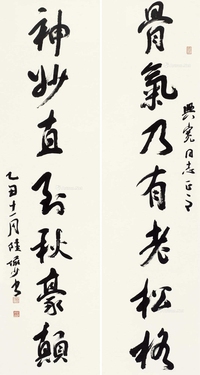 骨氣乃有老松格
興寬同志正之
神妙直到秋豪顛
乙丑十一月陸儼少書